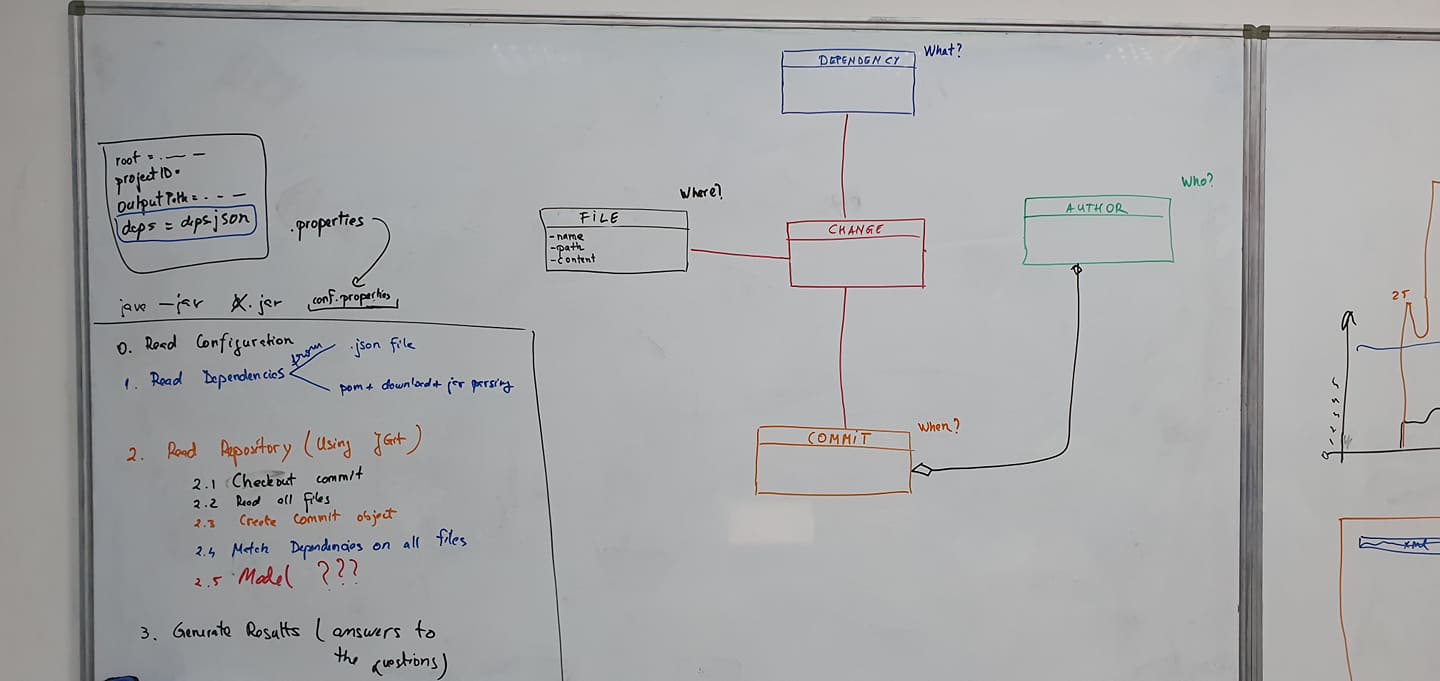 root = . — —
project ID =
Output Path = . - —
deps = deps.json
.properties
java —jar X.jar conf.properties
0. Read Configuration
1. Read Dependencies from
.json file
pom + download + jar parsing
2. Read Repository (Using JGit)
2.1 Checkout commit
2.2 Read all files
2.3 Create Commit object
2.4 Match Dependencies on all files
2.5 Model ???
3. Generate Results (answers to
the questions)
What?
DEPENDENCY
Where?
FILE
-name
-path
-content
CHANGE
Who?
AUTHOR
When?
COMMIT
25
xml